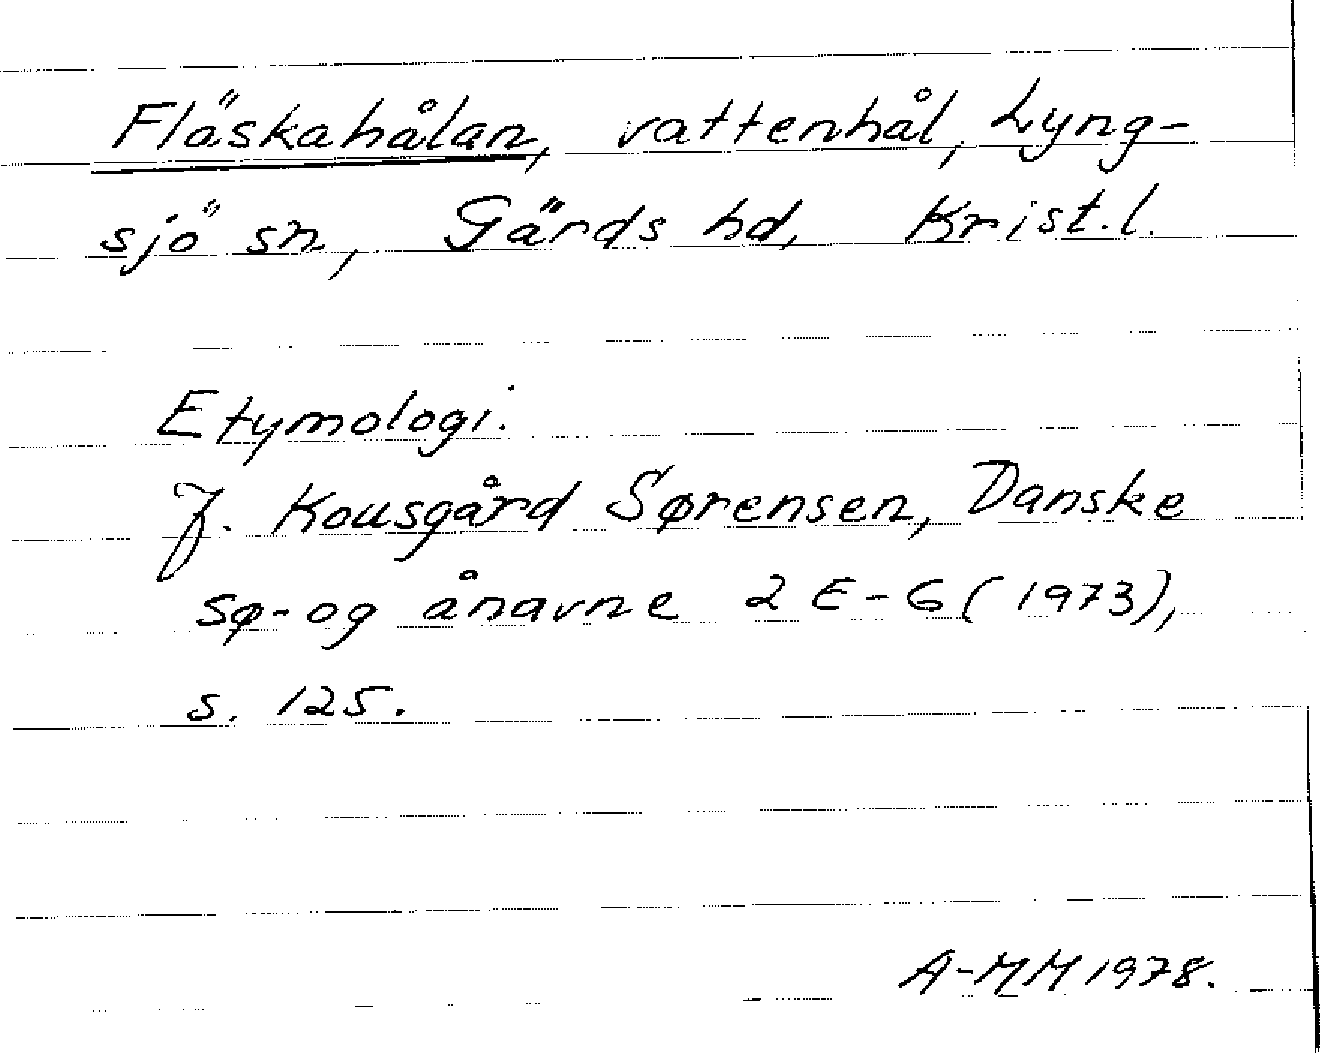 Fläskahålan, vattenhål, Lyng-
sjö sn, Gärds hd, Krist.l.
Etymologi.
J. Kousgård Sørensen, Danske
sø- og ånavne 2 E-G (1973),
s. 125.
A-MM 1978.